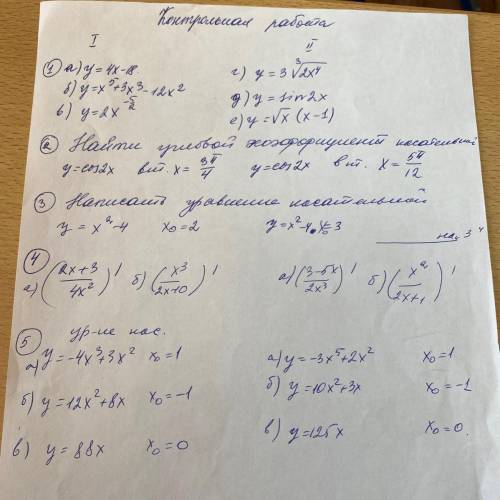 Контрольная работа
I II
① а) y = 4x - 18. г) y = 3∛(2x⁴)
б) y = x⁵ + 3x³ - 12x² д) y = sin 2x
в) y = 2x е) y = √x (x-1)
② Найти угловой коэффициент касательной
y = cos 2x в т. x = 3π/4 y = cos 2x в т. x = 5π/12
③ Написать уравнение касательной
y = x² - 4 x₀ = 2 y = x² - 4 x₀ = 3
на „3"
④
а) ((2x+3)/(4x²))' б) (x³/(2x+10))' а) ((3-5x)/(2x³))' б) (x²/(2x+1))'
⑤ ур-ие кас.
а) y = -4x³ + 3x² x₀ = 1 а) y = -3x⁵ + 2x² x₀ = 1
б) y = 12x² + 8x x₀ = -1 б) y = 10x² + 3x x₀ = -1
в) y = 88x x₀ = 0 в) y = 125x x₀ = 0.